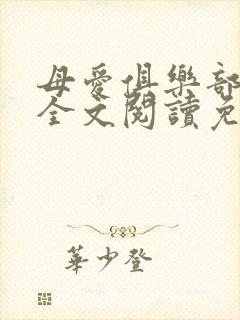 母愛俱樂部
全文閱讀免
華少登